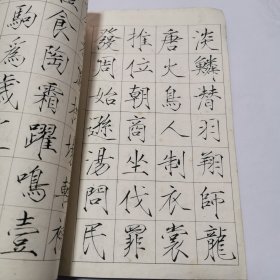 淡鱗潛羽翔師龍
唐火鳥人制衣裳
推位朝商坐伐罪
發周始遜湯問民
食陶霜躍鳴壹
駒為歲